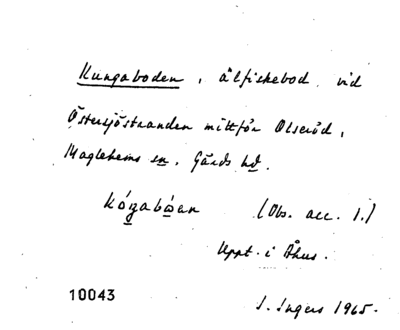 Kungaboden, ålfiskebod vid
Östersjöstranden mittför Olseröd,
Maglehems sn, Gärds hd.
(Obs. acc. 1.)
Uppt. i Åhus.
10043
I. Ingers 1965.